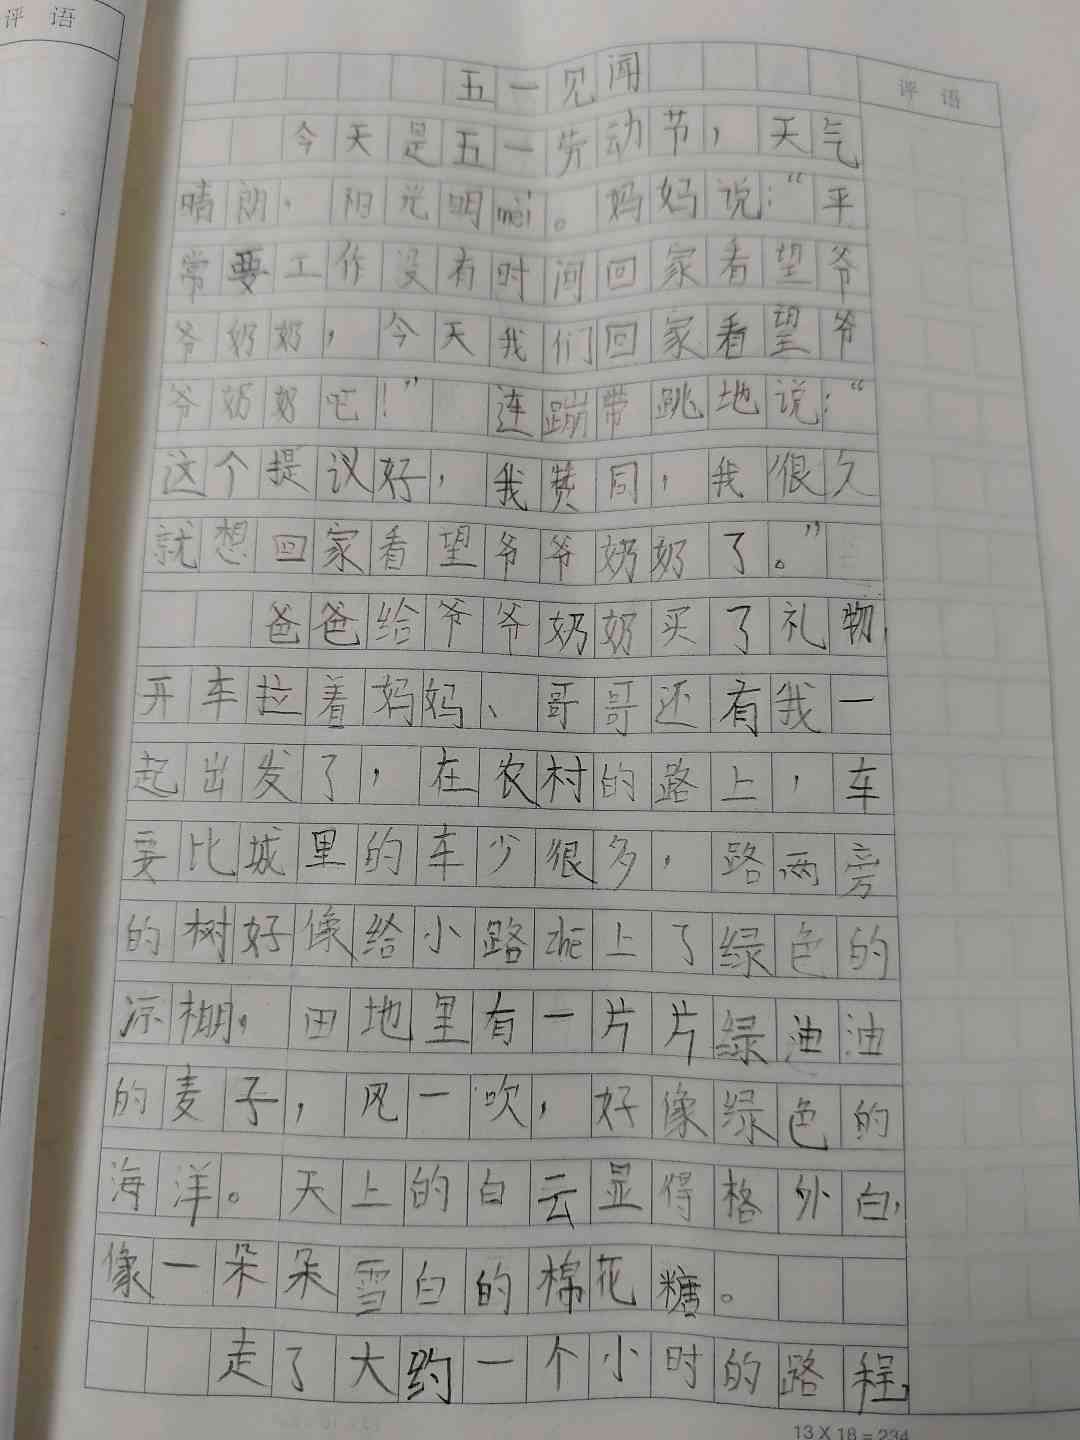 评 语
五一见闻
评 语
今天是五一劳动节，天气
晴朗，阳光明mèi。妈妈说：“平
常要工作没有时间回家看望爷
爷奶奶，今天我们回家看望爷
爷奶奶吧！”连蹦带跳地说：“
这个提议好，我赞同，我很久
就想回家看望爷爷奶奶了。”
爸爸给爷爷奶奶买了礼物，
开车拉着妈妈、哥哥还有我一
起出发了，在农村的路上，车
要比城里的车少很多，路两旁
的树好像给小路zhē上了绿色的
凉棚，田地里有一片片绿油油
的麦子，风一吹，好像绿色的
海洋。天上的白云显得格外白，
像一朵朵雪白的棉花糖。
走了大约一个小时的路程，
13X18=234